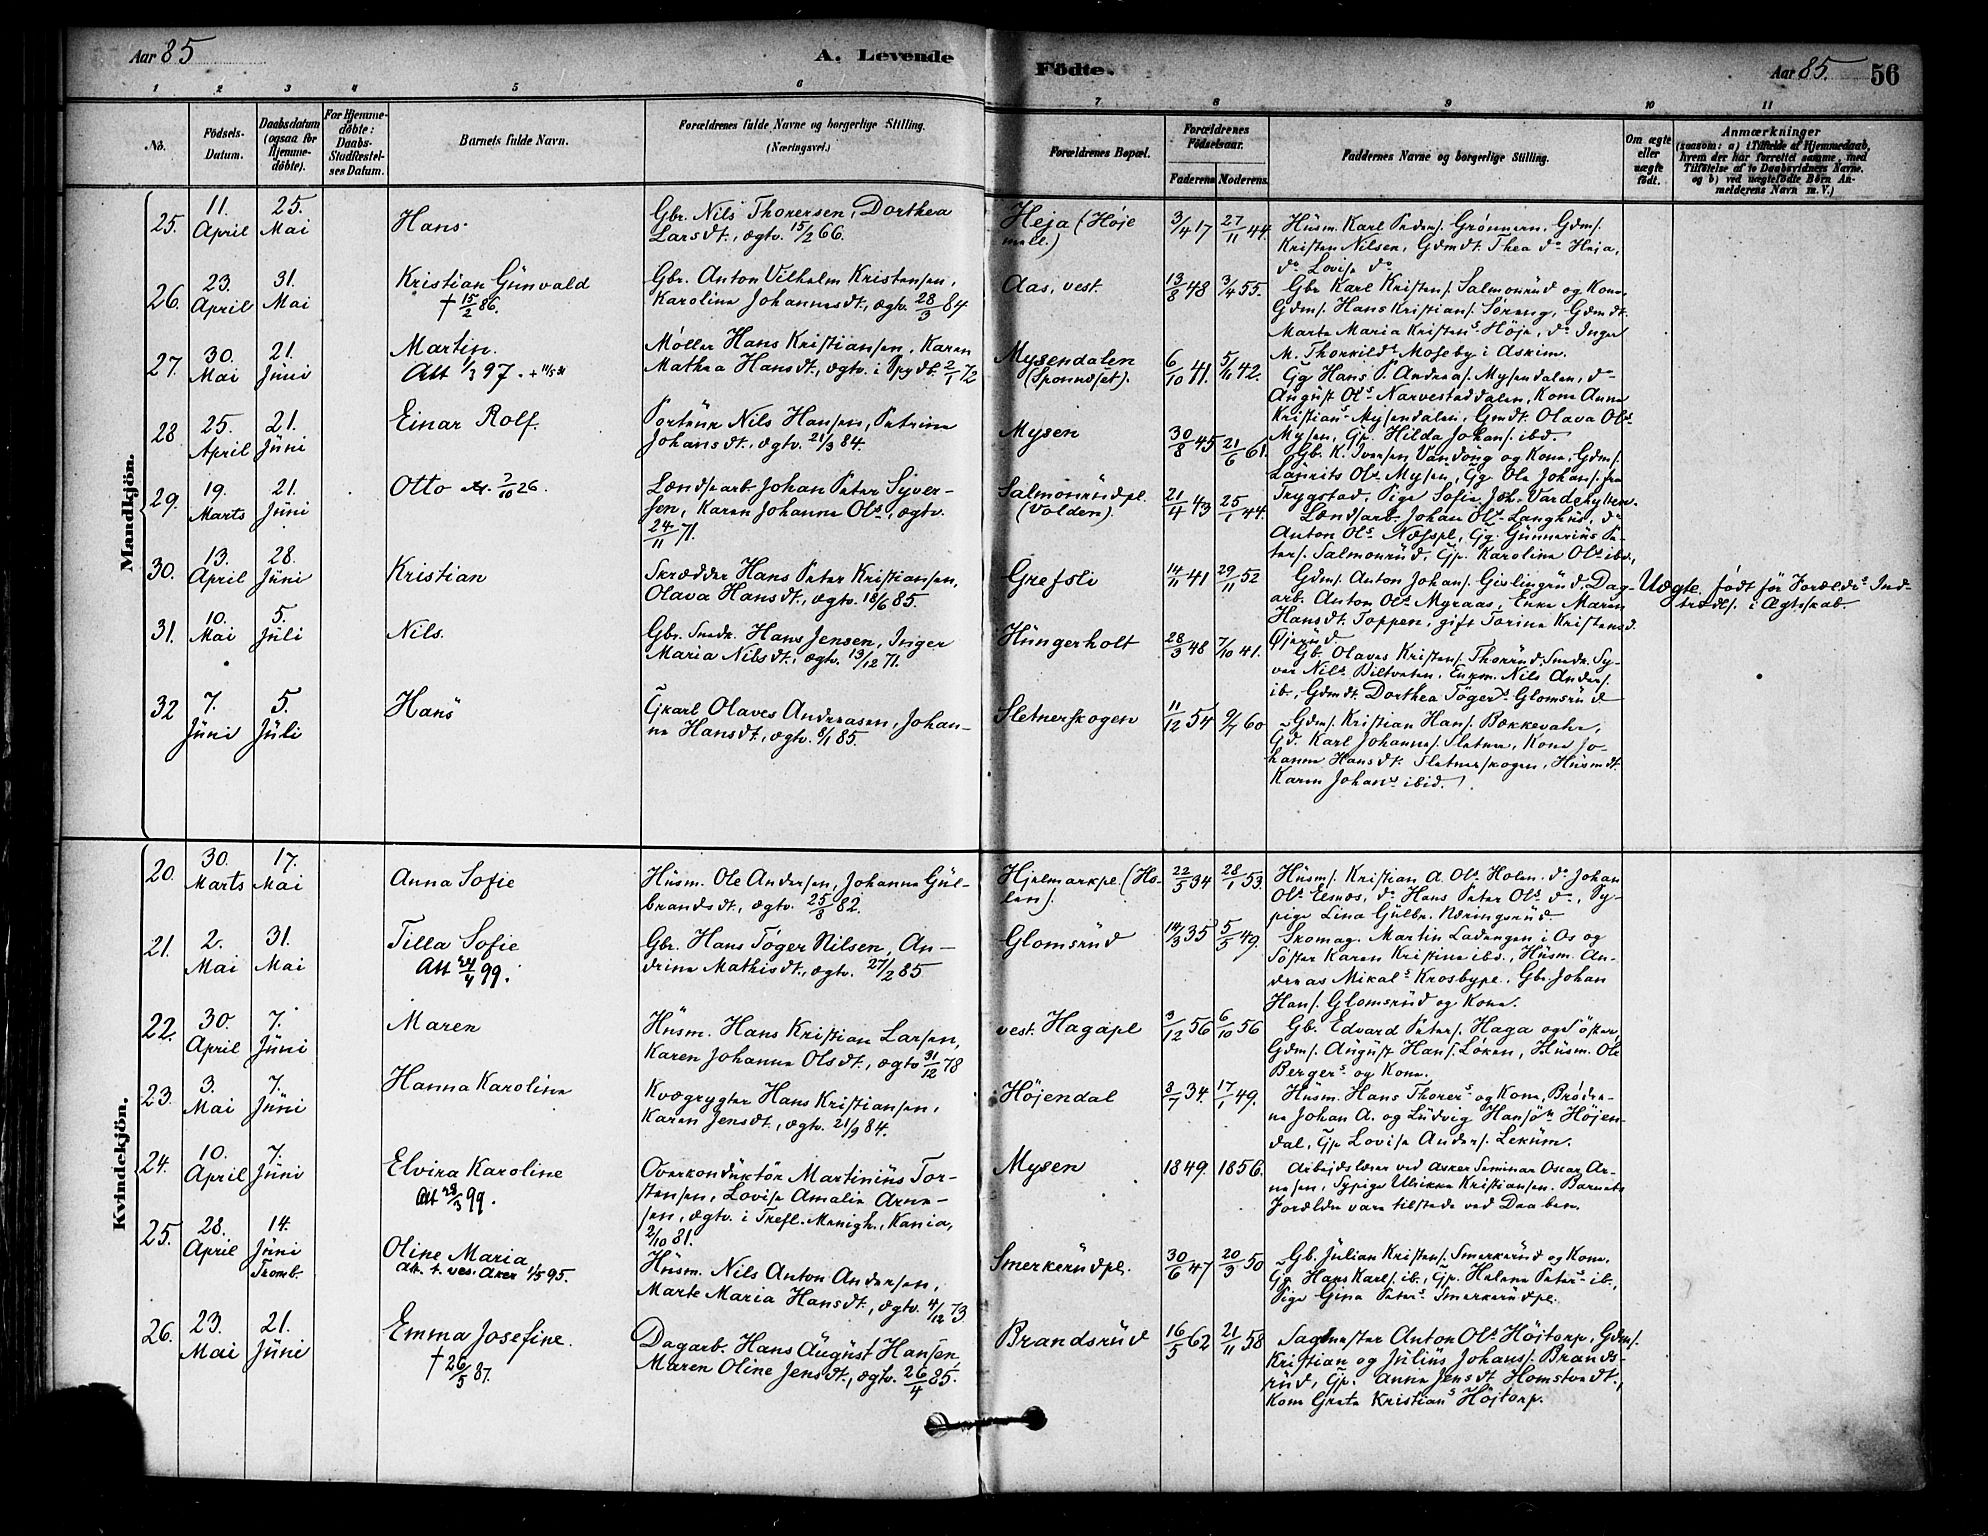 Aar 85
A. Levende Födte.
Aar 85. 56
1 2 3 4 5 6 7 8 9 10 11
No.
Födsels-
Datum.
Daabsdatum
(ogsaa for
Hjemme-
döbte).
For Hjemme-
döbte:
Daabs-
Stadfæstel-
ses Datum.
Barnets fulde Navn.
Forældrenes fulde Navne og borgerlige Stilling.
(Næringsvei.)
Forældrenes Bopæl.
Forældrenes
Födselsaar.
Faderens Moderens.
Faddernes Navne og borgerlige Stilling.
Om ægte
eller
uægte
født.
Anmærkninger
(saasom: a) i Tilfælde af Hjemmedaab,
hvem der har forrettet samme, med
Tilföielse af to Daabsvidners Navne.
og b) ved uægtefödte Börn An-
melderens Navn m. V.)
Mandkjön.
25.
11.
April
25.
Mai
Hans
Gbr. Nils Thoresen, Dorthea
Larsdt., ægtv. 15/2 66.
Heja (Høje
mell.)
3/4 17
27/11 44.
Husm. Karl Peders. Grønnern, Gdms.
Kristen Nilsen, Gdmdt. Thea do Heja,
do Lovise do
26.
23.
April
31.
Mai
Kristian Günvald
† 15/2 86.
Gbr. Anton Vilhelm Kristensen,
Karoline Johannesdt., ægtv. 28/3 84
Aas, vest.
13/8 48
3/4 55.
Gbr Karl Kristens. Salmonrud og Kone,
Gdms. Hans Kristians. Søreng, Gdmdt.
Marte Maria Kristens Höje, do Inger
M. Thorkilds Moseby i Askim.
27.
30.
Mai
21.
Jüni
Martin.
Att 1/3 97. + 11/5 31
Møller Hans Kristiansen, Karen
Mathea Hansdt., ægtv. i Spydb. 2/1 72
Mysendalen
(Sponvoset).
6/10 41.
5/11 42.
Gg Hans P. Andreas. Mysendalen, do
August Ols Narvestaddalen, Kone Anne
Kristians Mysendalen, Gmdt. Olava Ols
Mysen, Gp. Hilda Johans. ibd.
28
25.
April
21.
Jüni
Einar Rolf.
Portør Nils Hansen, Petrine
Johansdt., ægtv. 21/3 84.
Mysen
30/8 45
21/6 61.
Gb. K. Iversen Vandüng og Kone, Gdms.
Laurits Ols Mysen, Gg Ole Johans. fra
Trygstad, Pige Sofie Joh. Vardehytten.
29.
19.
Marts
21.
Jüni
Otto att. 7/10 26.
Landsarb. Johan Peter Syver-
sen, Karen Johanne Ols, ægtv.
24/11 71.
Salmonrüdpl.
(Volden).
21/4 43
25/1 44.
Landsarb. Johan Ols Langhüs, do
Anton Ols Næsspl., Gg. Günnerius Pe-
ters. Salmonrüd, Gp. Karoline Ols ibd.,
30.
13.
April
28.
Jüni
Kristian
Skrædder Hans Peter Kristiansen,
Olava Hansdt., ægtv. 18/6 85.
Grefsli
14/11 41
29/11 52
Gdms. Anton Johans. Gislingrüd, Dag-
arb. Anton Ols Myraas, Enke Maren
Hansdt. Toppen, gift Torine Kristensd.
Øjerüd.
Uægte, født før Forældrs Ind-
træds. i Ægtskab.
31.
10.
Mai
5.
Jüli
Nils.
Gbr. Smdk. Hans Jensen, Inger
Maria Nilsdt., ægtv. 13/12 71.
Hüngerholt
28/3 48
7/10 41.
Gb. Olaves Kristens. Thonrüd, Smdk. Sy-
ver Nils Biltvetn, Enkm. Nils Anders.
ib., Gdmdt. Dorthea Tögers Glomsrüd
32
7.
Jüni
5.
Jüli
Hans
Gjkarl Olaves Andreasen, Johan-
ne Hansdt., ægtv. 8/1 85.
Sletnerskogen
11/12 54
9/7 60
Gdms. Kristian Hans. Bækkevahr,
Gd. Karl Johannes. Sletner, Kone Jo-
hanne Hansdt. Sletnerskogen, Hüsmdt.
Karen Johans ibid.
Kvindekjön.
20.
30.
Marts
17.
Mai
Anna Sofie
Hüsm. Ole Andersen, Johanne Gül-
brandsdt., ægtv. 25/8 82.
Hjelmarkpl. (Ho-
len).
22/5 34
28/1 53.
Hüsms. Kristian A. Ols Holen, do Johan
Ols Elsnes, do Hans Peter Ols do, Sy-
pige Lina Gülbr. Næringsrüd
21.
2.
Mai
31.
Mai
Tilla Sofie
Att 24/4 99.
Gbr. Hans Töger Nilsen, An-
drine Mathisdt., ægtv. 27/2 85
Glomsrüd
14/3 35
5/5 49.
Skomag. Martin Ladengen i Os og
Söster Karen Kristine ibd., Hüsm. An-
dreas Mikals Krosbype., Gbr. Johan
Hans. Glomsrüd og Kone.
22.
30.
April
7.
Jüni
Maren
Hüsm. Hans Kristian Larsen,
Karen Johanne Olsdt., ægtv 31/12 78
vest. Hagapl
3/12 56
6/10 56
Gb. Edvard Peters. Haga og Söster,
Gdms. August Hans. Løken, Hüsm. Ole
Bergers og Kone.
23.
3.
Mai
7.
Jüni
Hanna Karoline
Kvægrygter Hans Kristiansen,
Karen Jensdt., ægtv. 21/9 84.
Höjendal
8/7 34.
17/1 49.
Hüsm. Hans Thorers og Kone, Brødre-
ne Johan A. og Lüdvig Hansön Höjen-
dal, Gp Lovise Anders. Leküm.
24.
10.
April
7.
Jüni
Elvira Karoline
Att 28/3 99.
Overkondüktör Martiniüs Tor-
stensen, Lovise Amalie Arne-
sen, ægtv. i Trefl. Menigh., Kania,
2/10 81.
Mysen
1849.
1856.
Arbejdslærer ved Asker Seminar Oscar Ar-
nesen, Sypige Ulrikke Kristiansen. Barnets
Forældre vare tilstede ved Daaben.
25.
28.
April
14.
Jüni
Tromb.
Oline Maria
Att. t. ves. Aker 1/5 95.
Hüsm. Nils Anton Andersen,
Marte Maria Hansdt., ægtv. 4/12 73
Smerkerüdpl.
30/6 47
20/3 50
Gb. Julian Kristens. Smerkerüd og Kone,
Gg Hans Karls. ib., Gp. Helene Peters ib.,
Pige Gina Peters Smerkerüdpl.
26.
23.
Mai
21.
Jüni
Emma Josefine.
† 26/5 87.
Dagarb. Hans August Hansen,
Maren Oline Jensdt., ægtv. 26/4 85.
Brandsrüd
16/5 62
21/11 58
Sagmester Anton Ols Höjtorp, Gdms.
Kristian og Jüliüs Johans. Brands-
rüd, Gp. Anne Jensdt Homstvedt,
Kone Grete Kristians Höjtorp.